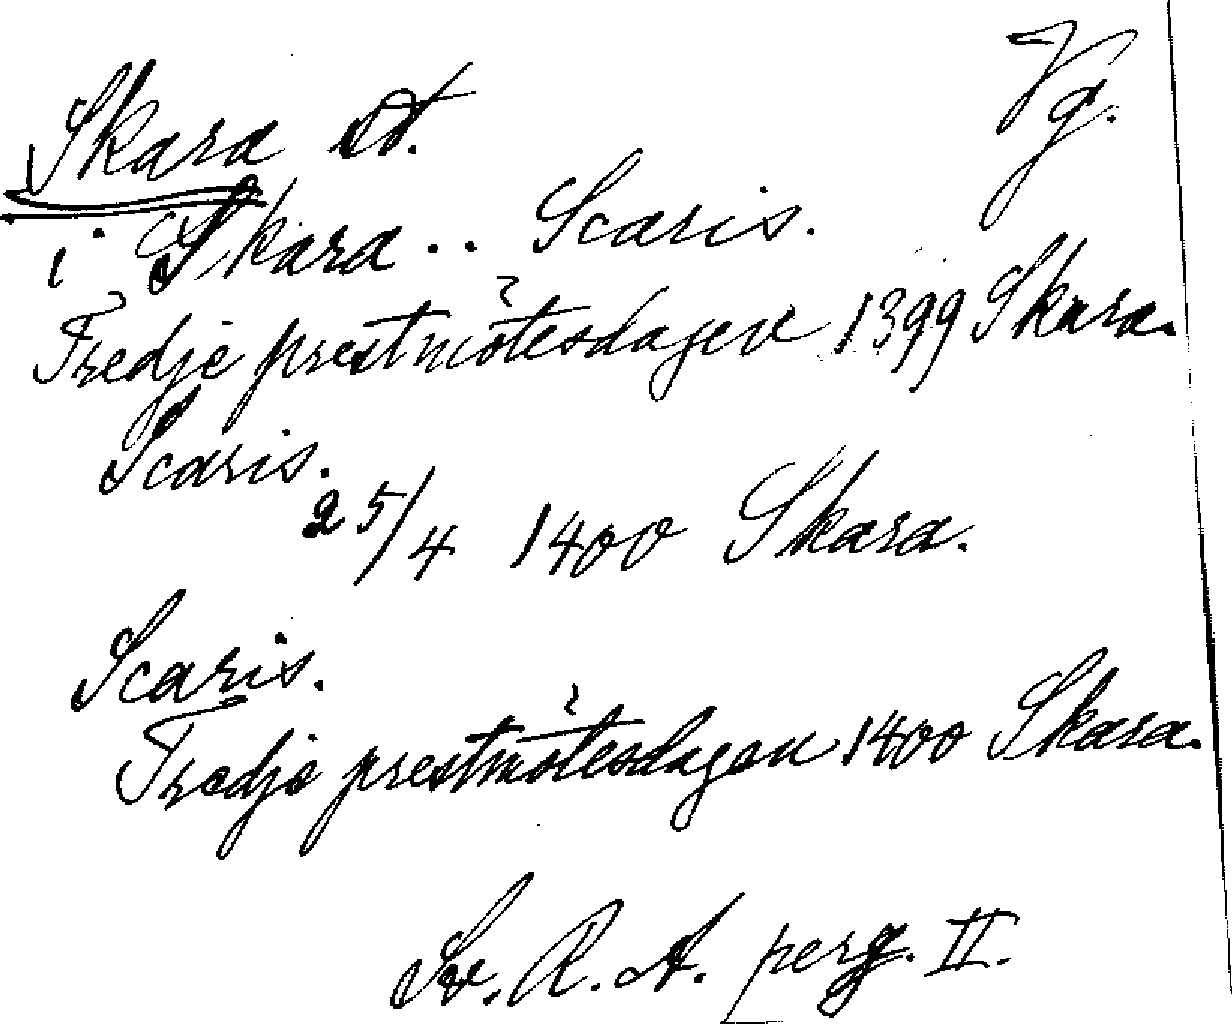 Vg.
Skara st.
i Skara .. Scaris.
Tredje prestmötesdagen 1399 Skara.
Scaris.
25/4 1400 Skara.
Scaris.
Tredje prestmötesdagen 1400 Skara.
Sv. R. A. perg. II.